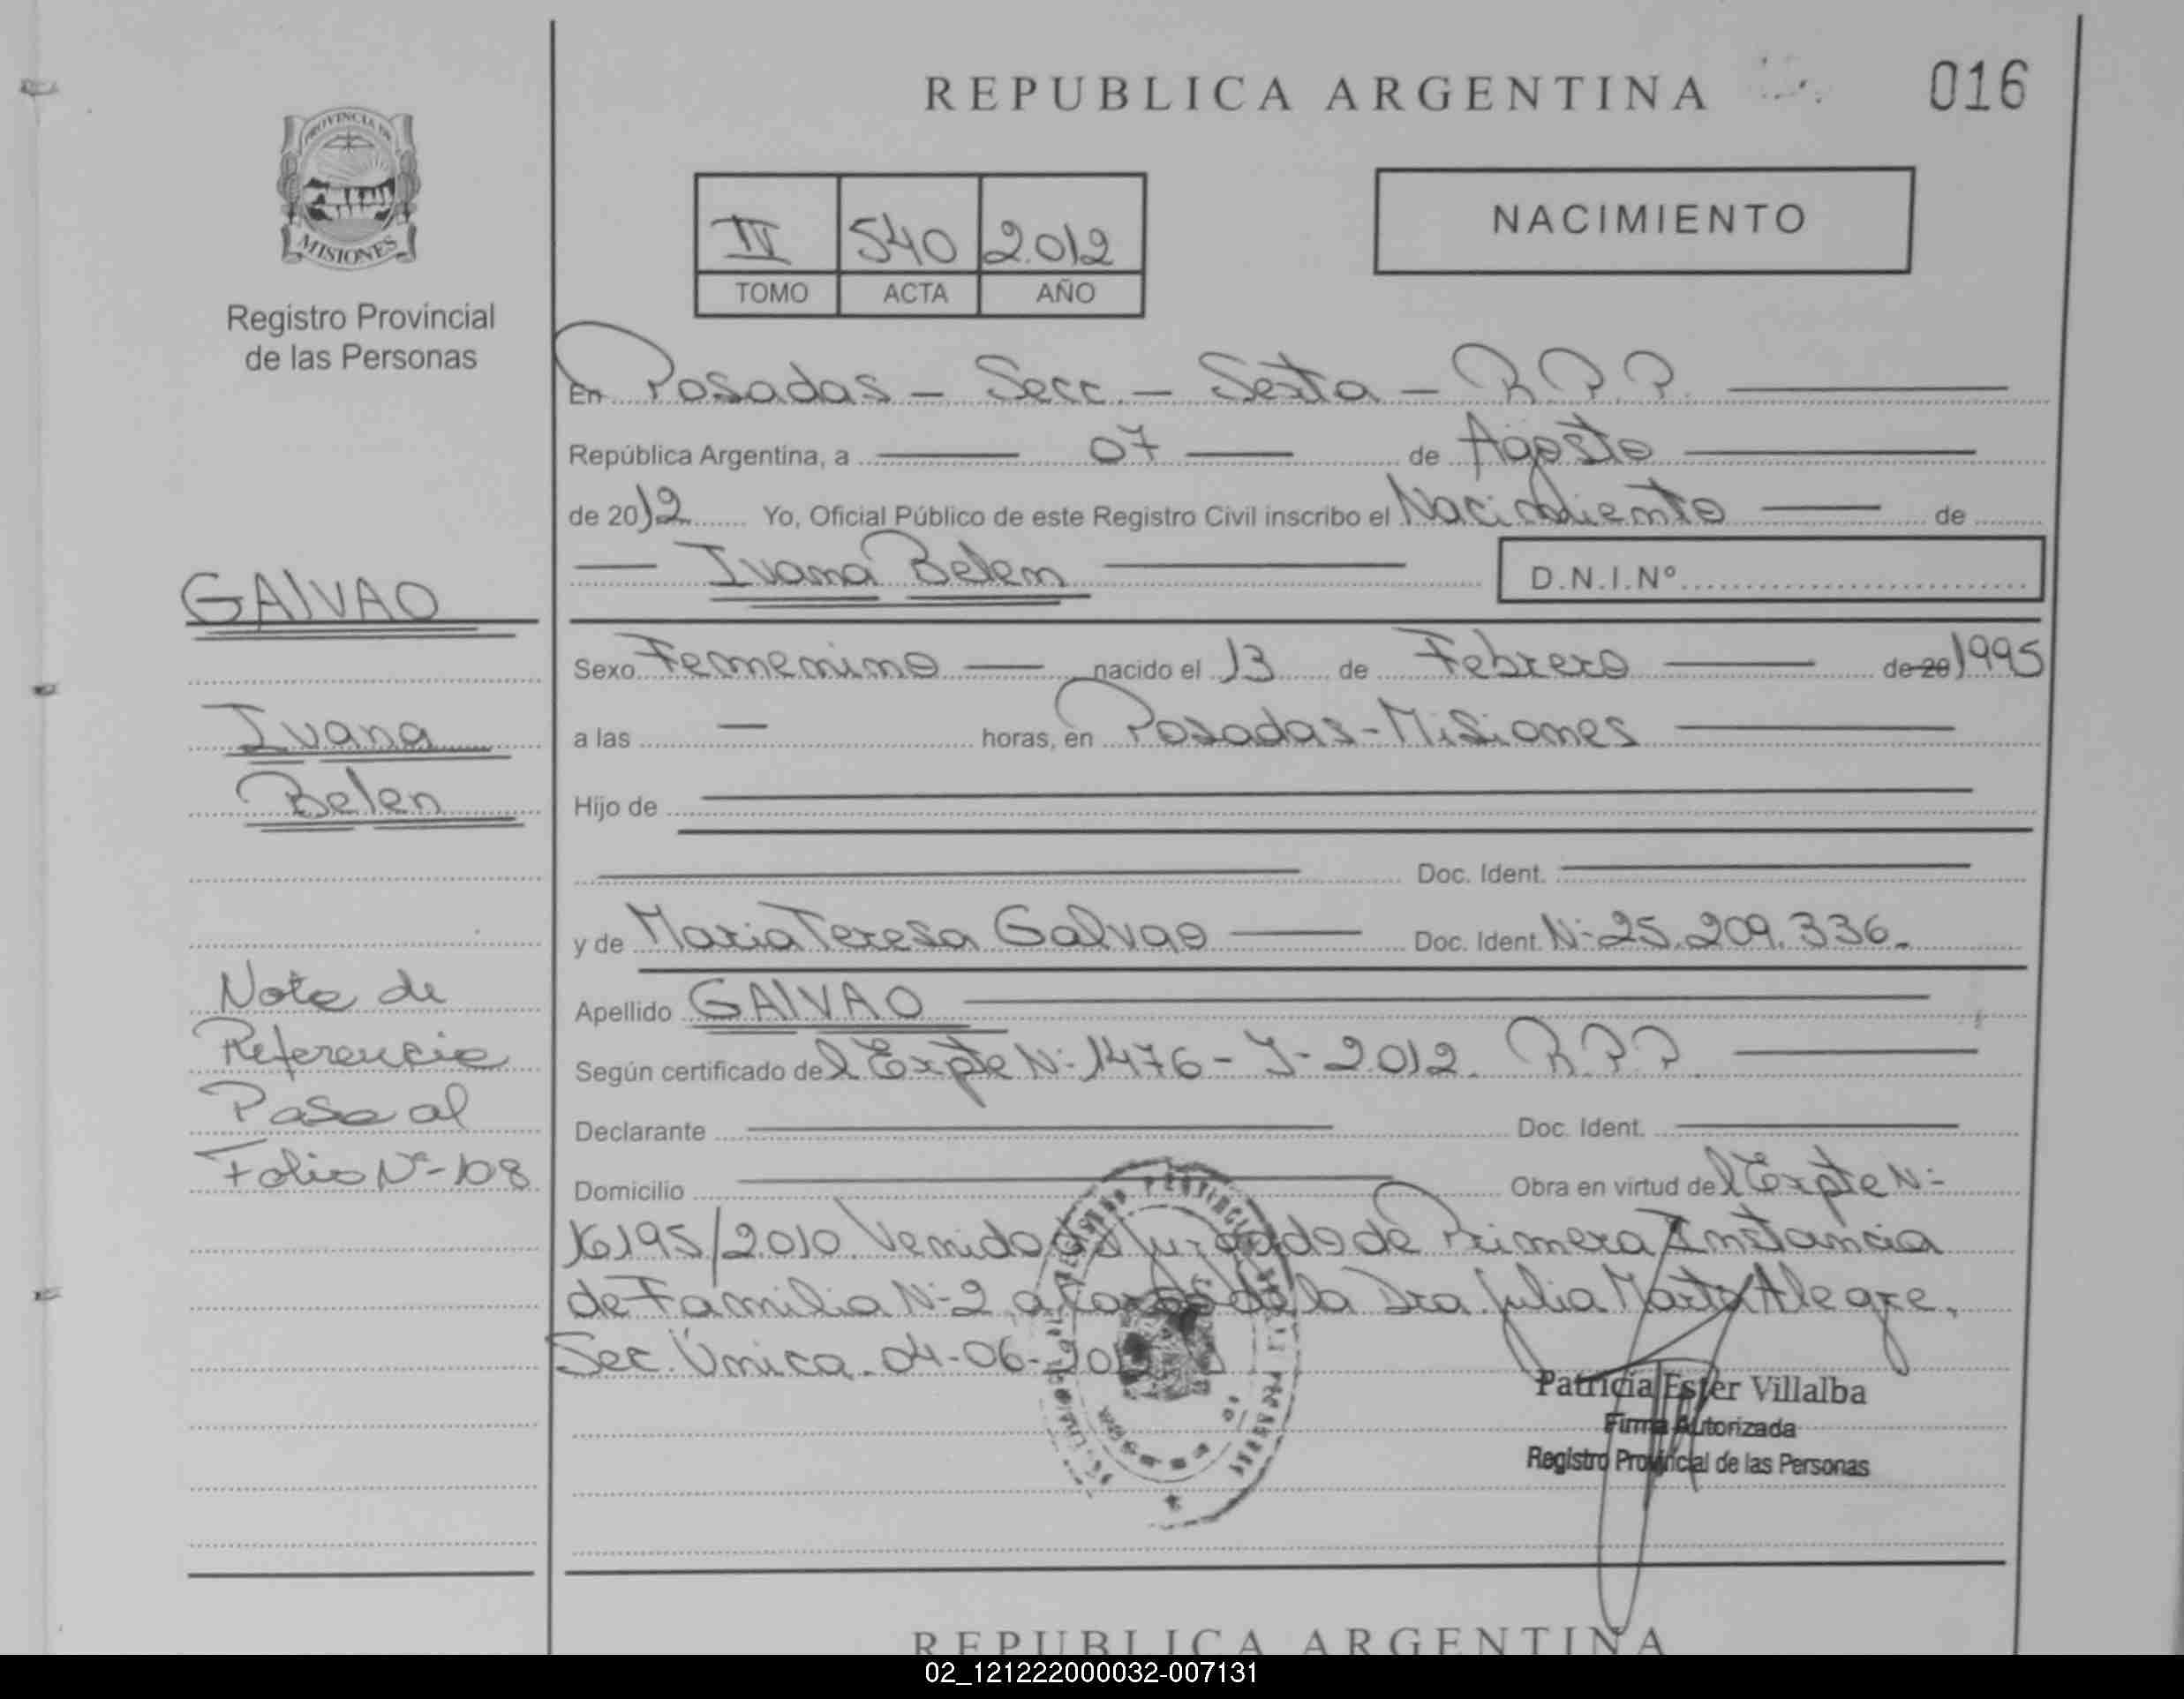 REPUBLICA ARGENTINA
016
PROVINCIA DE
MISIONES
Registro Provincial
de las Personas
NACIMIENTO
IV 540 2.012
TOMO ACTA AÑO
En Posadas - Secc. - Sexta - R.P.P.
República Argentina, a 07 de Agosto
de 2012 Yo, Oficial Público de este Registro Civil inscribo el Nacimiento de
Ivana Belem
D.N.I.Nº
GAlVAO
Ivana
Belen
Sexo Femenino nacido el 13 de Febrero de 20 1995
a las — horas, en Posadas - Misiones
Hijo de
Doc. Ident.
y de Maria Teresa Galvao Doc. Ident. N- 25.209.336.
Apellido GAlVAO
Según certificado del Expte N- 1476 - J - 2.012. R.P.P.
Declarante Doc. Ident.
Domicilio Obra en virtud del Expte N-
16195/2010. Venido del Juzgado de Primera Instancia
de Familia N-2 a Cargo de la Dra Julia Marta Alegre.
Sec. Única. 04-06-
Nota de
Referencia
Pasa al
Folio Nº-108
Patricia Ester Villalba
Firma Autorizada
Registro Provincial de las Personas
REPUBLICA ARGENTINA
02_121222000032-007131